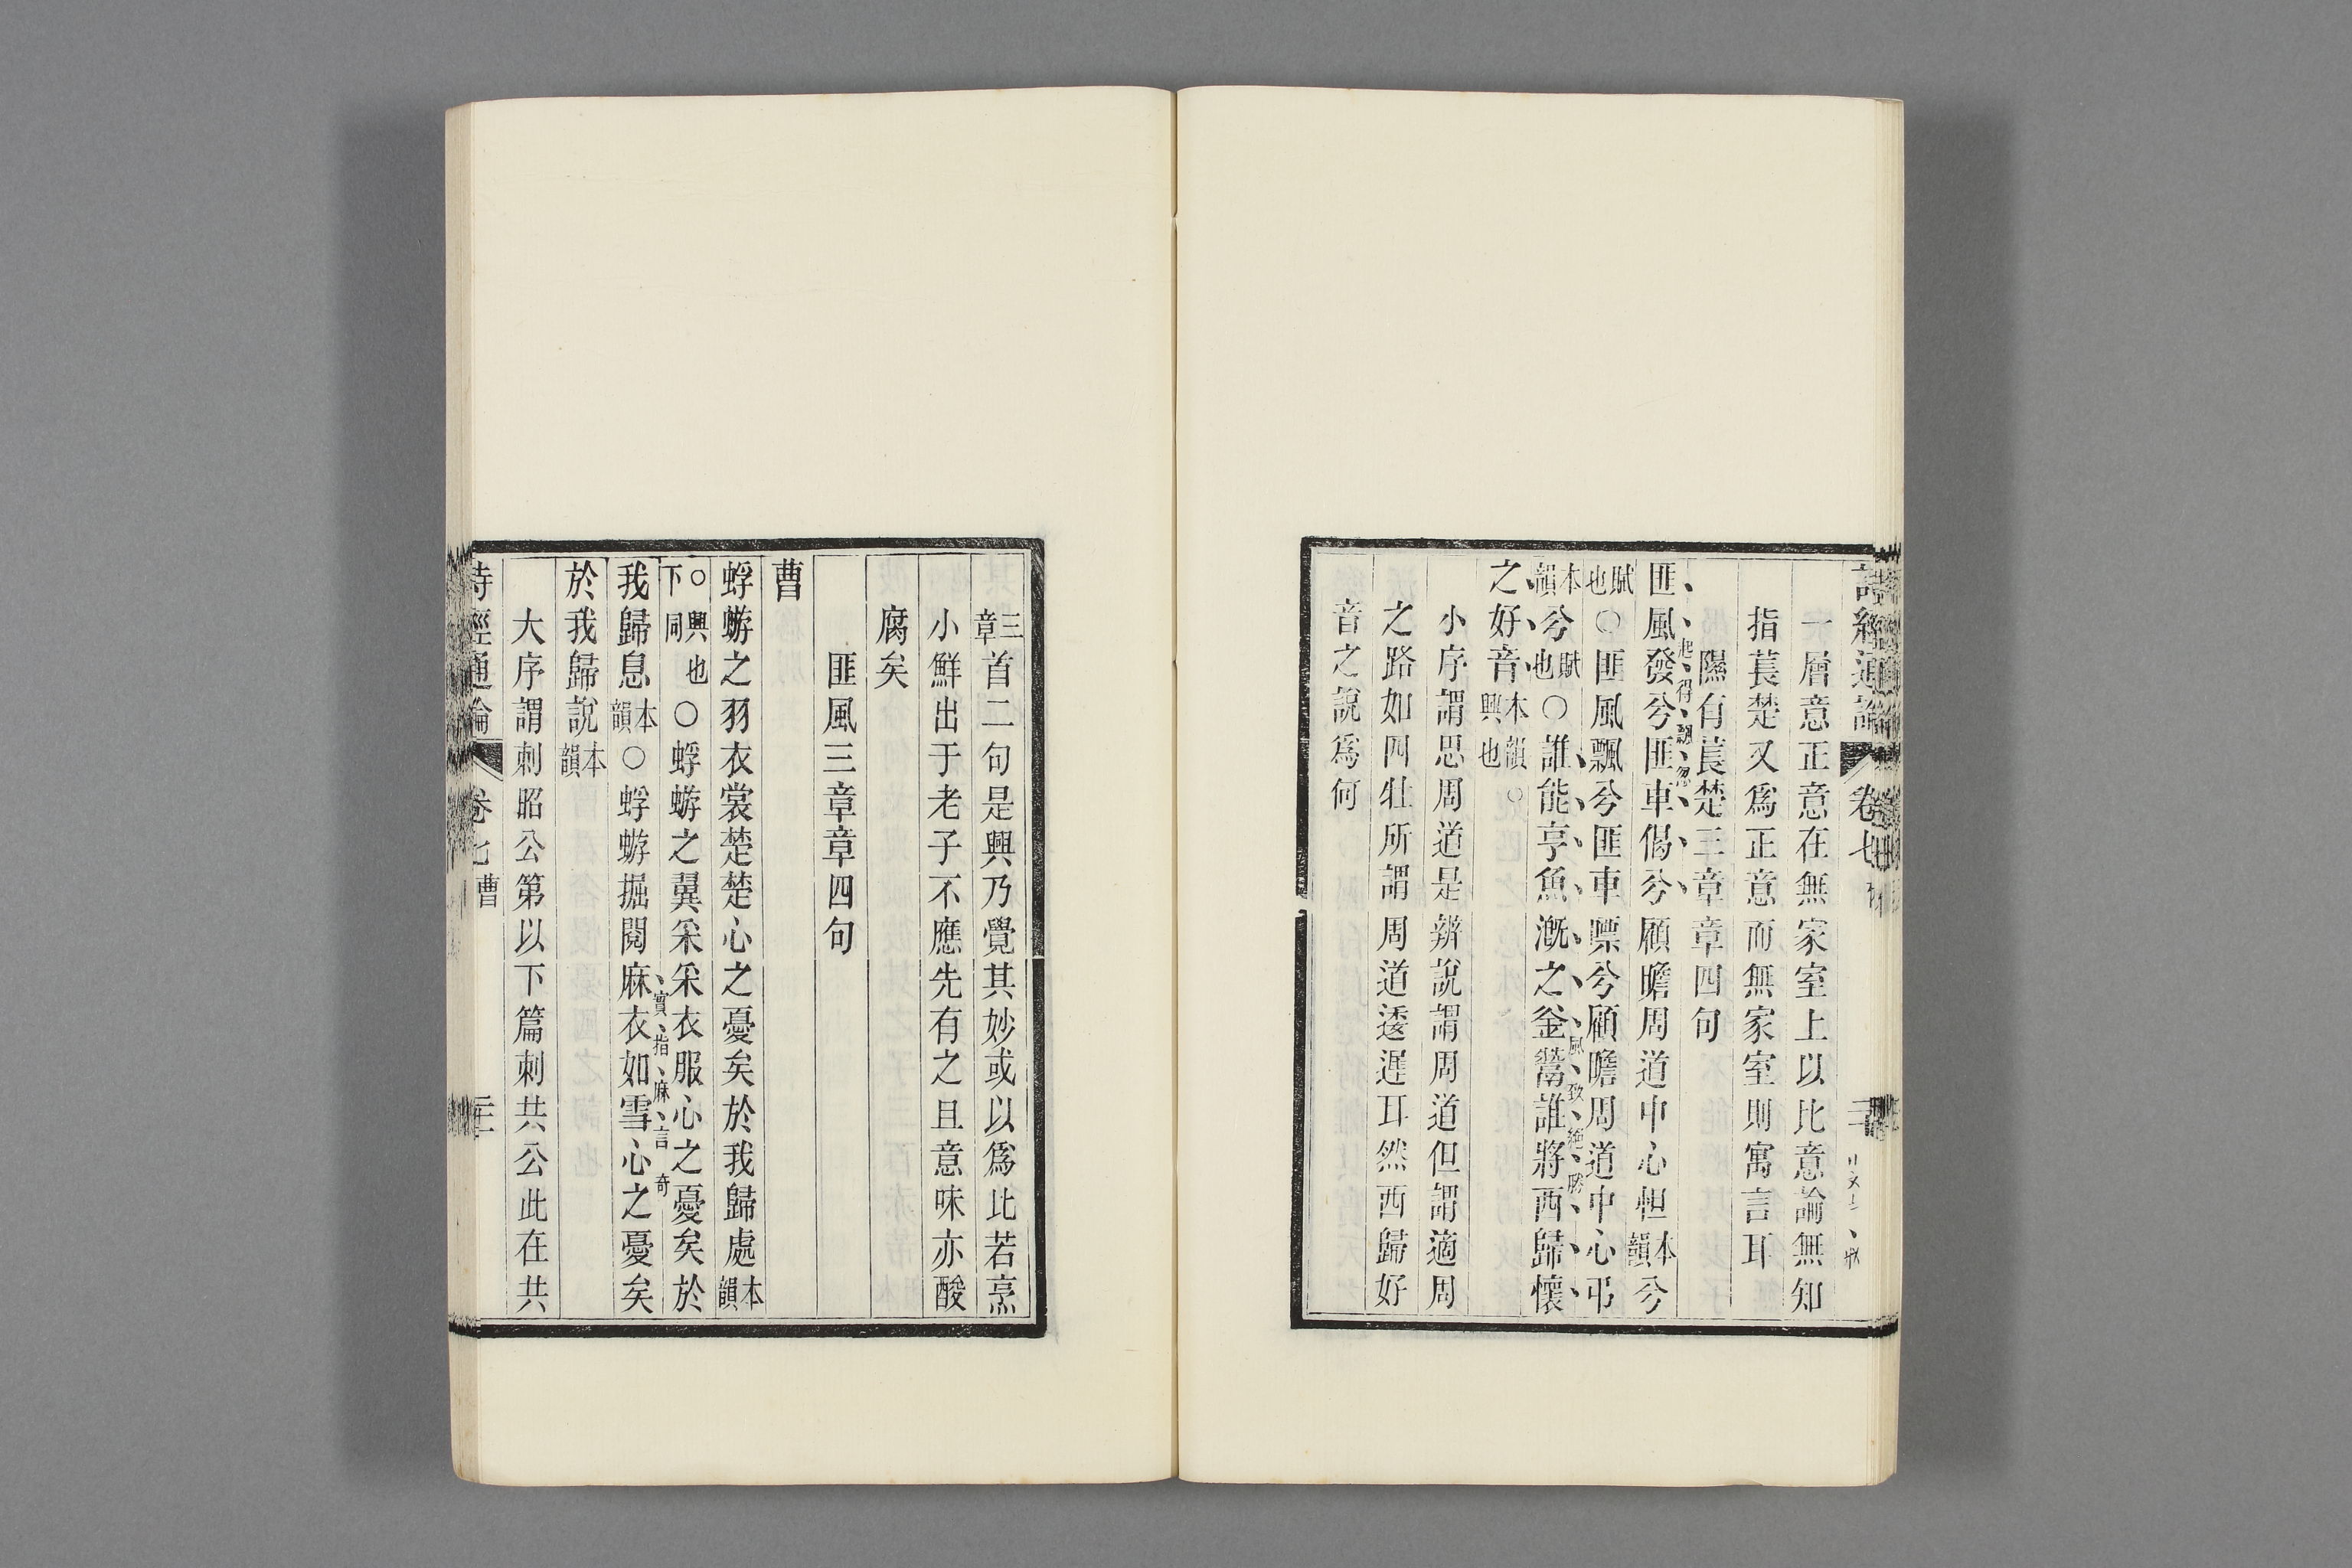 一層意正意在無家室上以比意論無知
指萇楚又爲正意而無家室則寓言耳
隰有萇楚三章章四句
匪風發兮匪車偈兮顧瞻周道中心怛本韻兮
起得飄忽
賦也○匪風飄兮匪車嘌兮顧瞻周道中心弔
本韻兮賦也○誰能亨魚漑之釜鬵誰將西歸懷
風致絕勝
之好音本韻興也○
小序謂思周道是辨說謂周道但謂適周
之路如四牡所謂周道逶遲耳然西歸好
音之說爲何
三章首二句是興乃覺其妙或以爲比若烹
小鮮出于老子不應先有之且意味亦酸
腐矣
匪風三章章四句
曹
蜉蝣之羽衣裳楚楚心之憂矣於我歸處本韻
○興也下同○蜉蝣之翼采采衣服心之憂矣於
我歸息本韻○蜉蝣掘閱麻衣如雪心之憂矣
實指麻言奇
於我歸說本韻
大序謂刺昭公第以下篇刺共公此在共
詩經通論 卷七 曹